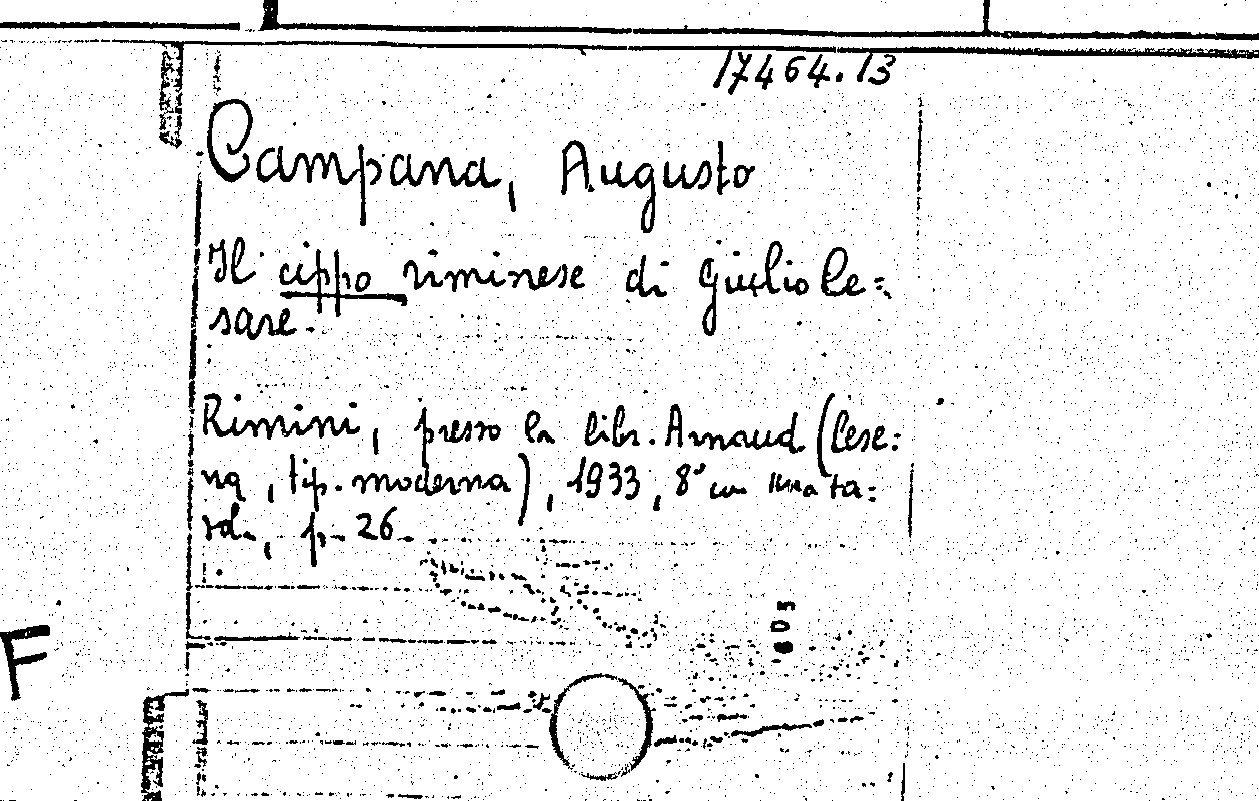 17464.13
Campana, Augusto
Il cippo riminese di Giulio Ce=
sare.
Rimini, presso la libr. Arnaud (Cese:
na, tip. moderna), 1933, 8° con una ta:
vola, p. 26
F